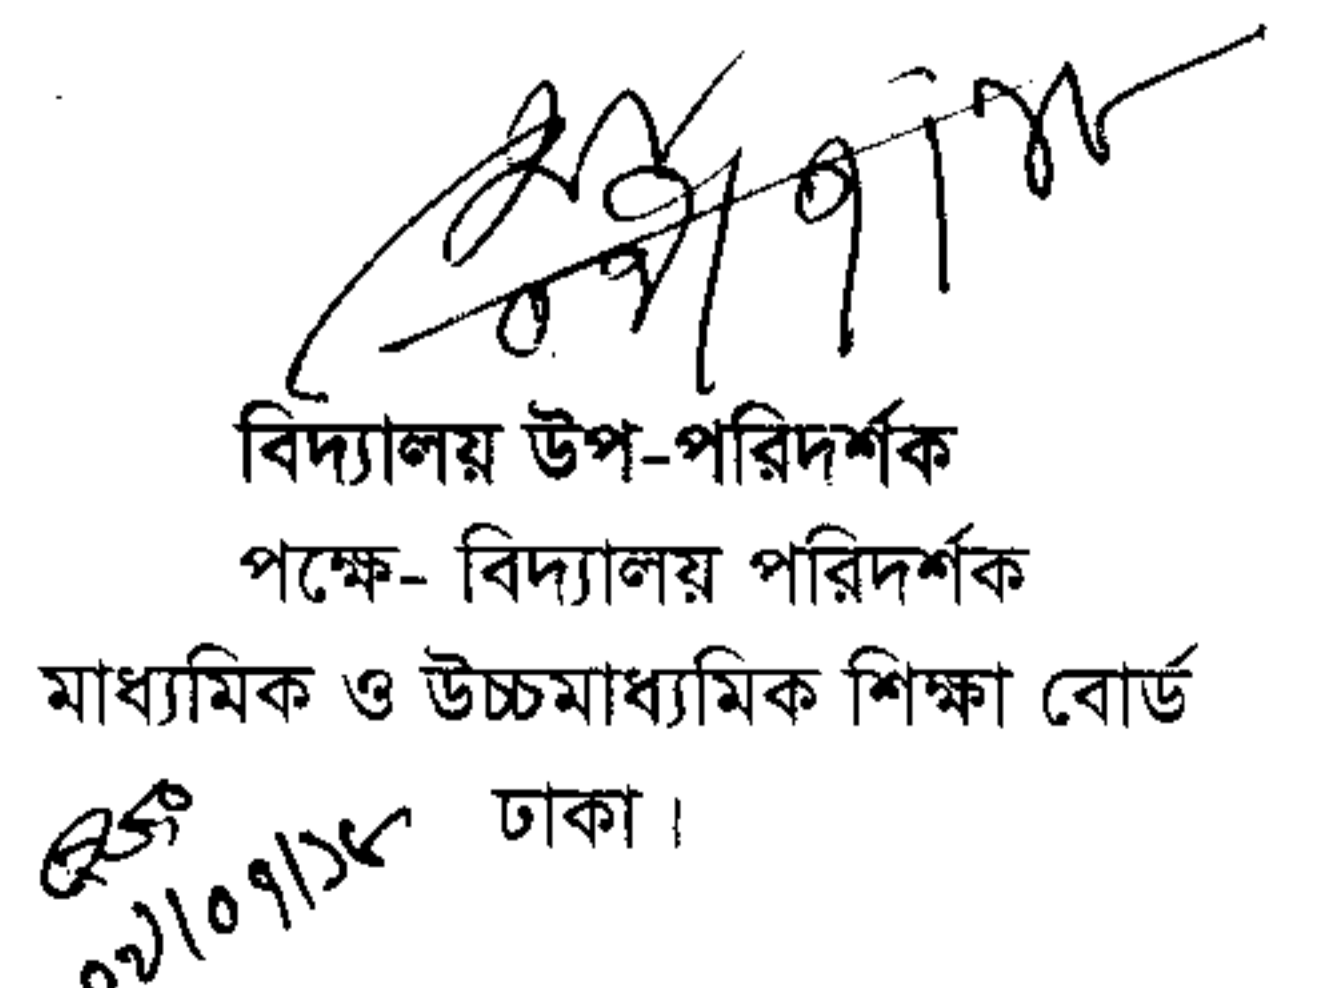 বিদ্যালয় উপ-পরিদর্শক
পক্ষে- বিদ্যালয় পরিদর্শক
মাধ্যমিক ও উচ্চমাধ্যমিক শিক্ষা বোর্ড
ঢাকা।
০২/০৭/১৮